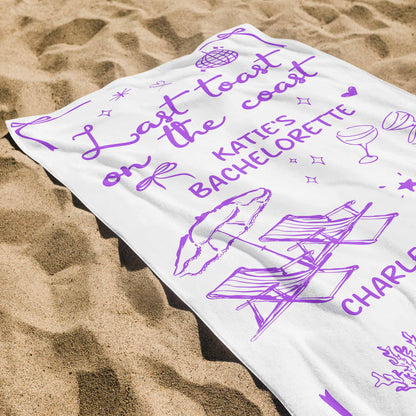 Last toast
on the coast
KATIE'S
BACHELORETTE